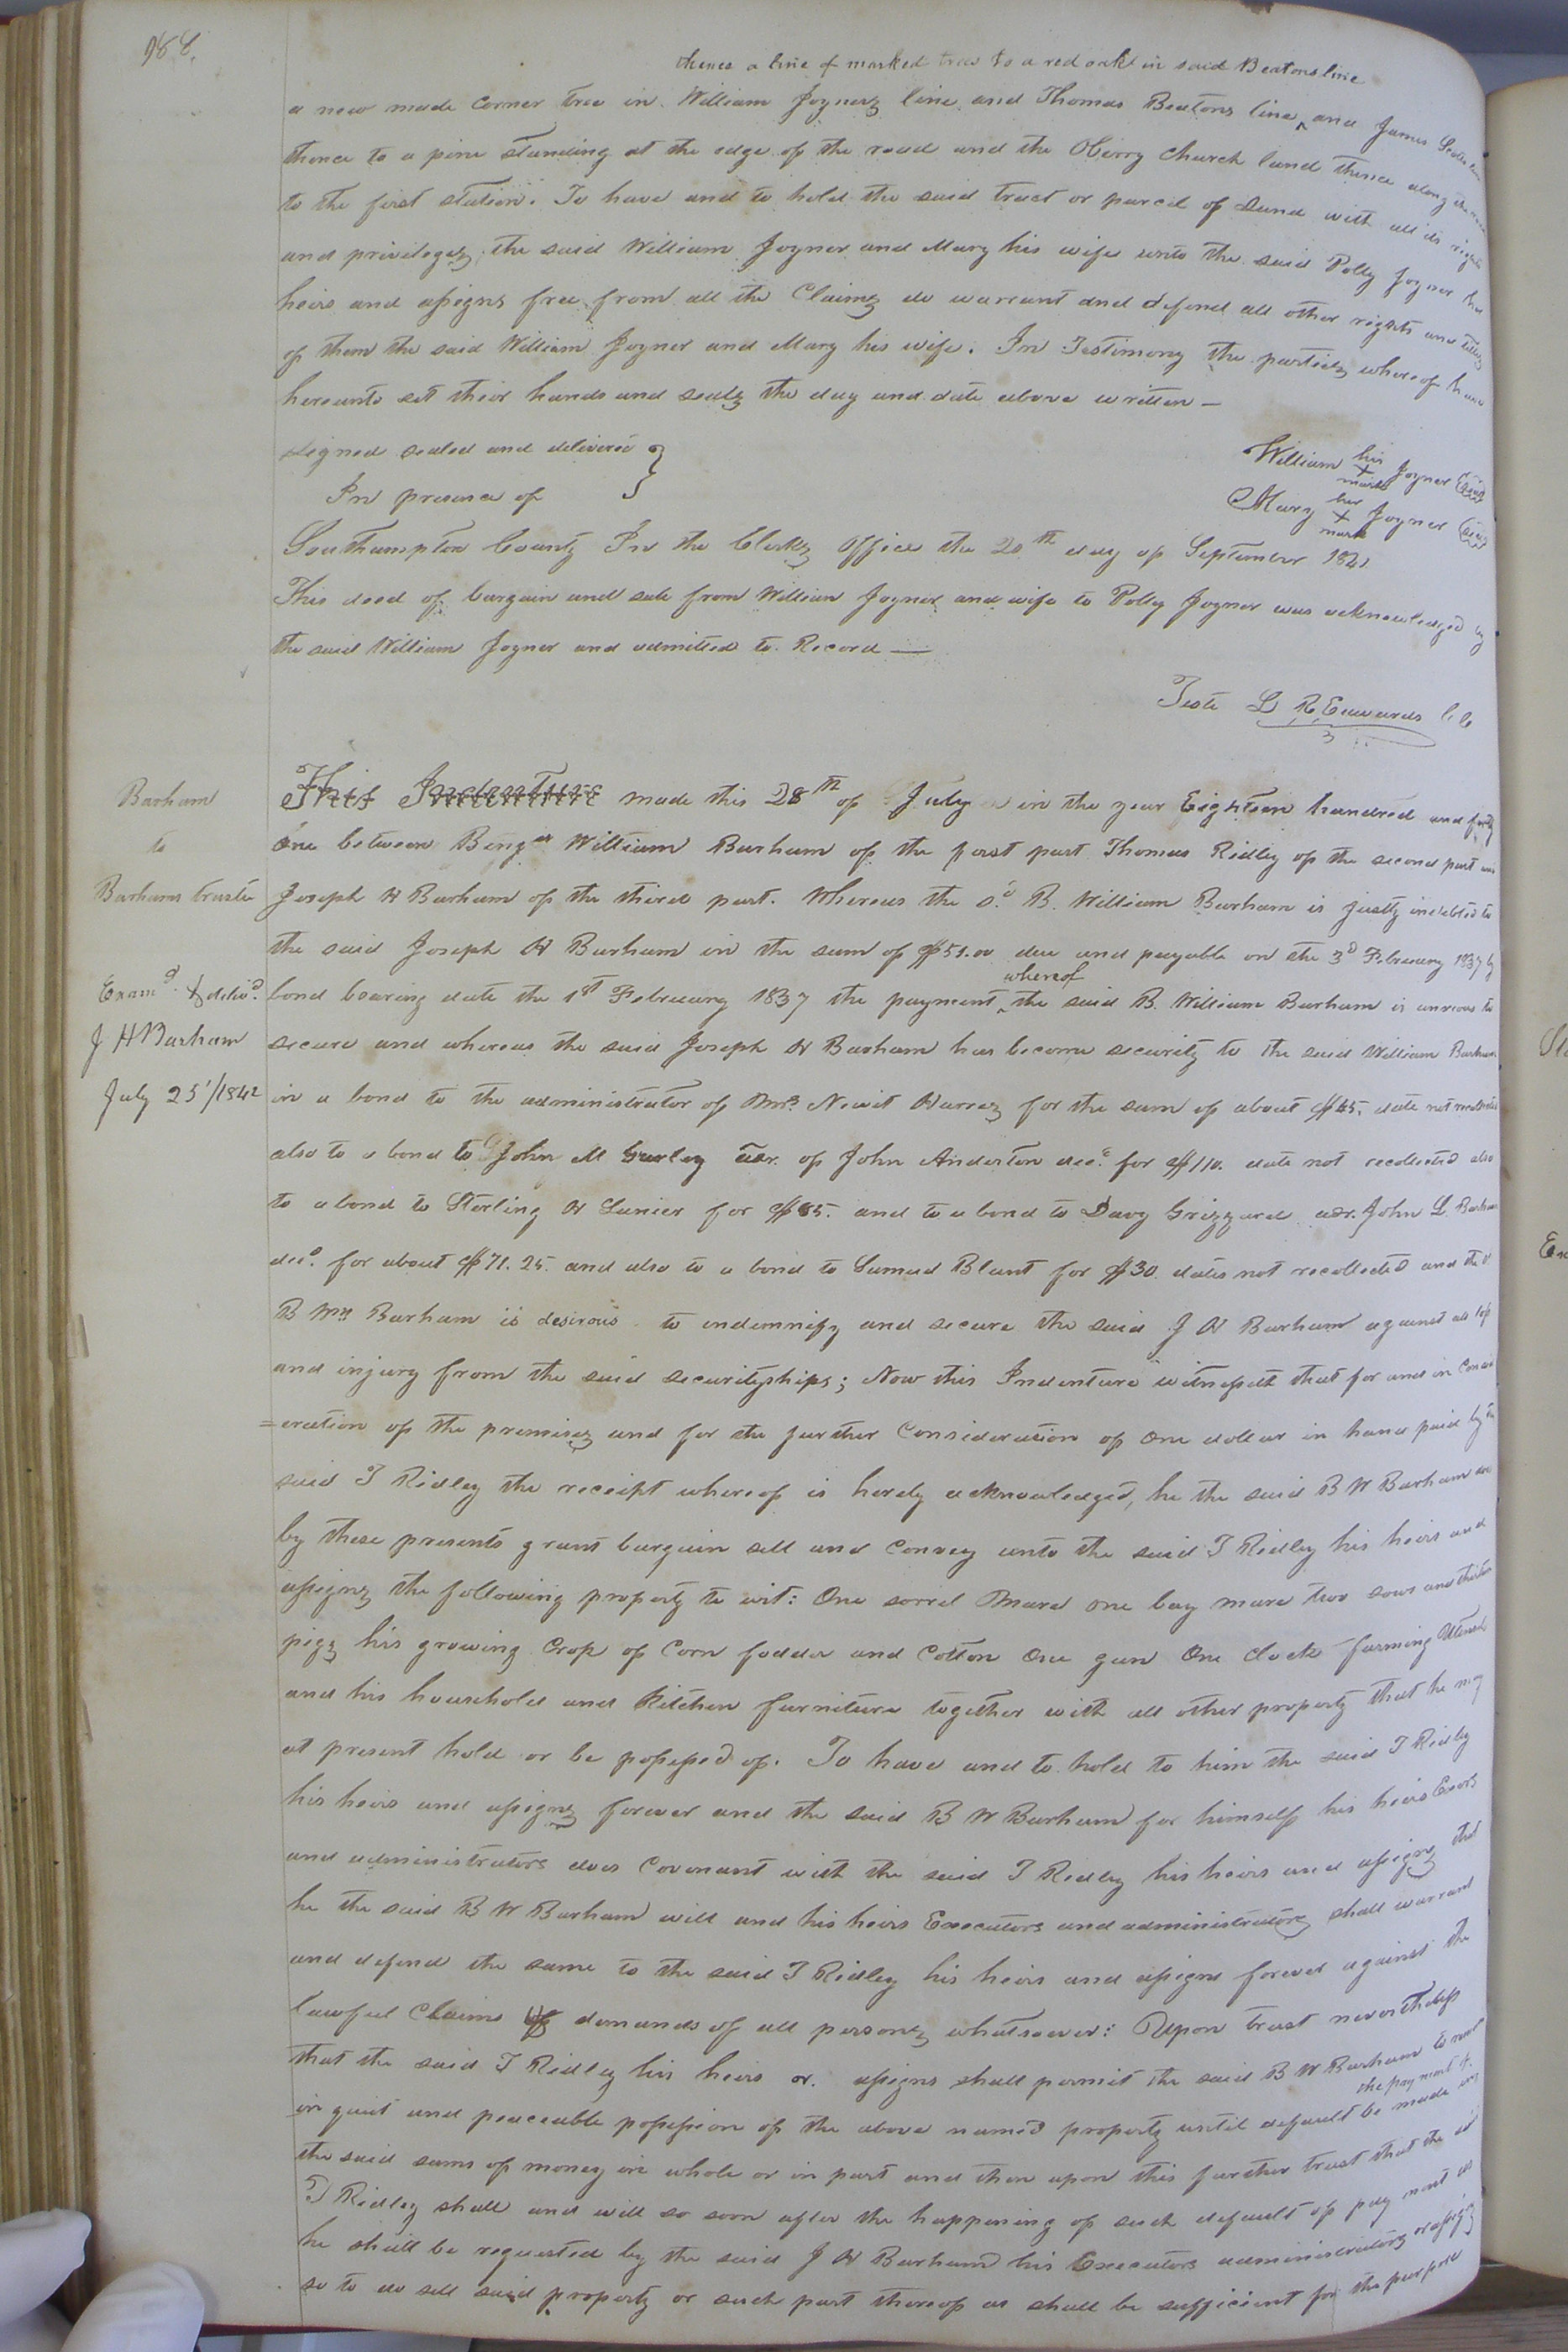 988.
thence a line of marked trees to a red oak in said Beatons line
a new made corner tree in William Joyners line and Thomas Beatons line ^ and James
thence to a pine standing at the edge of the road and the Oberry Church land thence along the
to the first station. To have and to hold the said tract or parcel of Land with all its rights
and privileges, the said William Joyner and Mary his wife unto the said Polly Joyner her
heirs and assigns free from all the Claims do warrant and defend all other rights and titles
of them the said William Joyner and Mary his wife. In Testimony the parties whereof have
hereunto set their hands and seals the day and date above written —
signed sealed and delivered }
In presence of
William his + mark Joyner (Seal)
Mary her + mark Joyner (Seal)
Southampton County In the Clerks Office the 20th day of September 1841
This deed of bargain and sale from William Joyner and wife to Polly Joyner was acknowledged by
the said William Joyner and admitted to Record —
Teste L R Edwards C.C
Barham
to
Barhams trustee
Examd. & delivd.
J H Barham
July 25'/1842
This Indenture made this 28th of July in the year Eighteen hundred and forty
One between Benja William Barham of the first part Thomas Ridley of the second part and
Joseph H Barham of the third part. Whereas the sd. B. William Barham is justly indebted to
the said Joseph H Barham in the sum of $51.00 due and payable on the 3d February 1837 by
bond bearing date the 1st February 1837 the payment ^ whereof the said B. William Barham is anxious to
secure and whereas the said Joseph H Barham has become security to the said William Barham
in a bond to the administrator of Mrs. Newit Harris for the sum of about $45. date not recollected
also to a bond to John M Gurley adr. of John Anderton decd. for $110. date not recollected also
to a bond to Sterling H Lanier for $85. and to a bond to Davy Grizzard adr. John L. Barham
decd. for about $71.25. and also to a bond to Samuel Blunt for $30. dates not recollected and the sd
B Wm Barham is desirous to indemnify and secure the said J H Barham against all loss
and injury from the said securityships; Now this Indenture witnesseth that for and in Consid
=eration of the premises and for the further Consideration of One dollar in hand paid by the
said T Ridley the receipt whereof is hereby acknowledged, he the said B W Barham does
by these presents grant bargain sell and convey unto the said T Ridley his heirs and
assigns the following property to wit: One sorrel Mare one bay mare two sows and thirteen
pigs his growing Crop of Corn fodder and Cotton One gun One Clock farming Utensils
and his household and Kitchen furniture together with all other property that he may
at present hold or be possessed of. To have and to hold to him the said T Ridley
his heirs and assigns forever and the said B W Barham for himself his heirs Exors
and administrators does Covenant with the said T Ridley his heirs and assigns that
he the said B W Barham will and his heirs Executors and administrators shall warrant
and defend the same to the said T Ridley his heirs and assigns forever against the
lawful Claims demands of all persons whatsoever: Upon trust nevertheless
that the said T Ridley his heirs or assigns shall permit the said B W Barham to remain
in quiet and peaceable possession of the above named property until default be made in the payment of
the said sums of money in whole or in part and then upon this further trust that the sd
T Ridley shall and will so soon after the happening of such default of payment as
he shall be requested by the said J H Barham his Executors administrators or assigns
so to do sell said property or such part thereof as shall be sufficient for the purpose